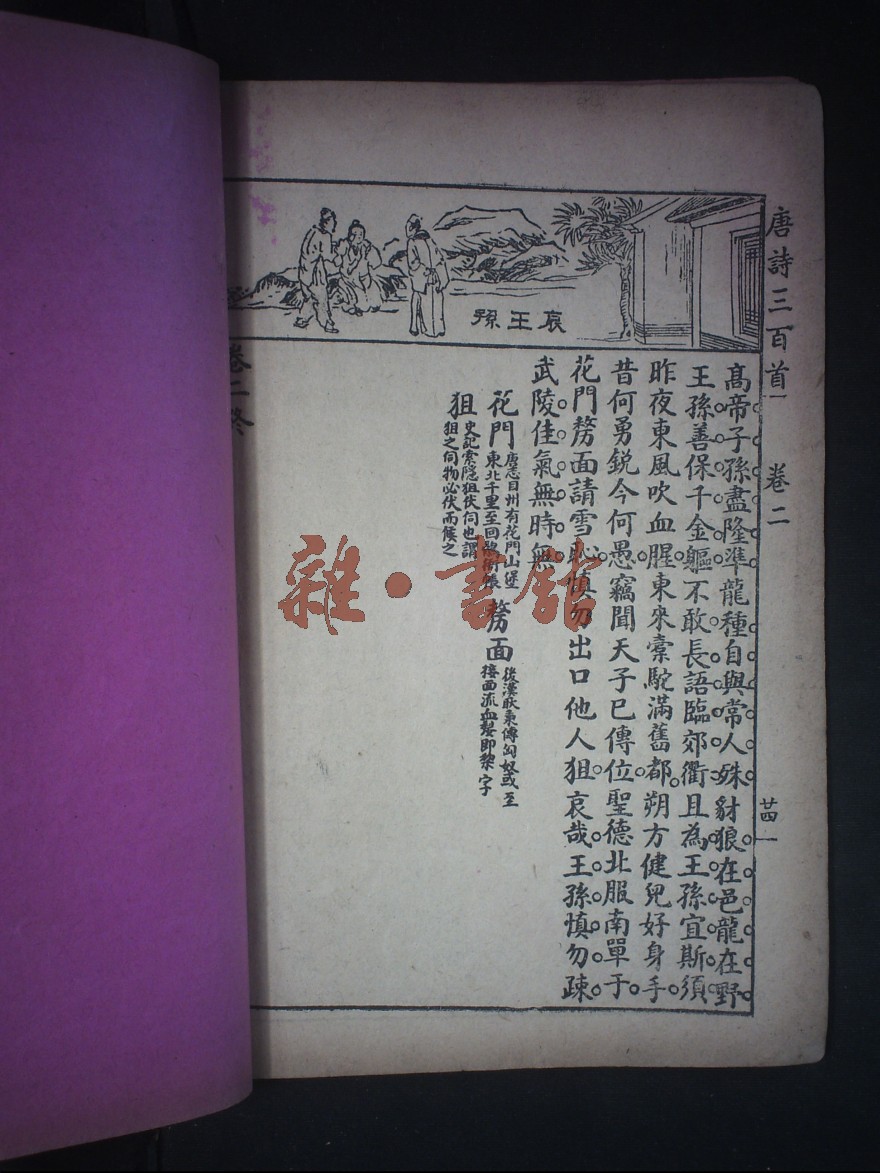 唐詩三百首
卷二
廿四
哀王孫
高帝子孫盡隆準龍種自與常人殊豺狼在邑龍在野
王孫善保千金軀不敢長語臨郊衢且為王孫宜斯須
昨夜東風吹血腥東來橐駝滿舊都朔方健兒好身手
昔何勇銳今何愚竊聞天子已傳位聖德北服南單于
花門剺面請雪恥慎勿出口他人狙哀哉王孫慎勿疎
武陵佳氣無時無
花門
唐志甘州有花門山堡
東北千里至回鶻衙帳
剺面
後漢耿秉傳匈奴或至
棃面流血棃即剺字
狙
史記索隱狙伏伺也謂
狙之伺物必伏而候之
卷二終
雜·書館